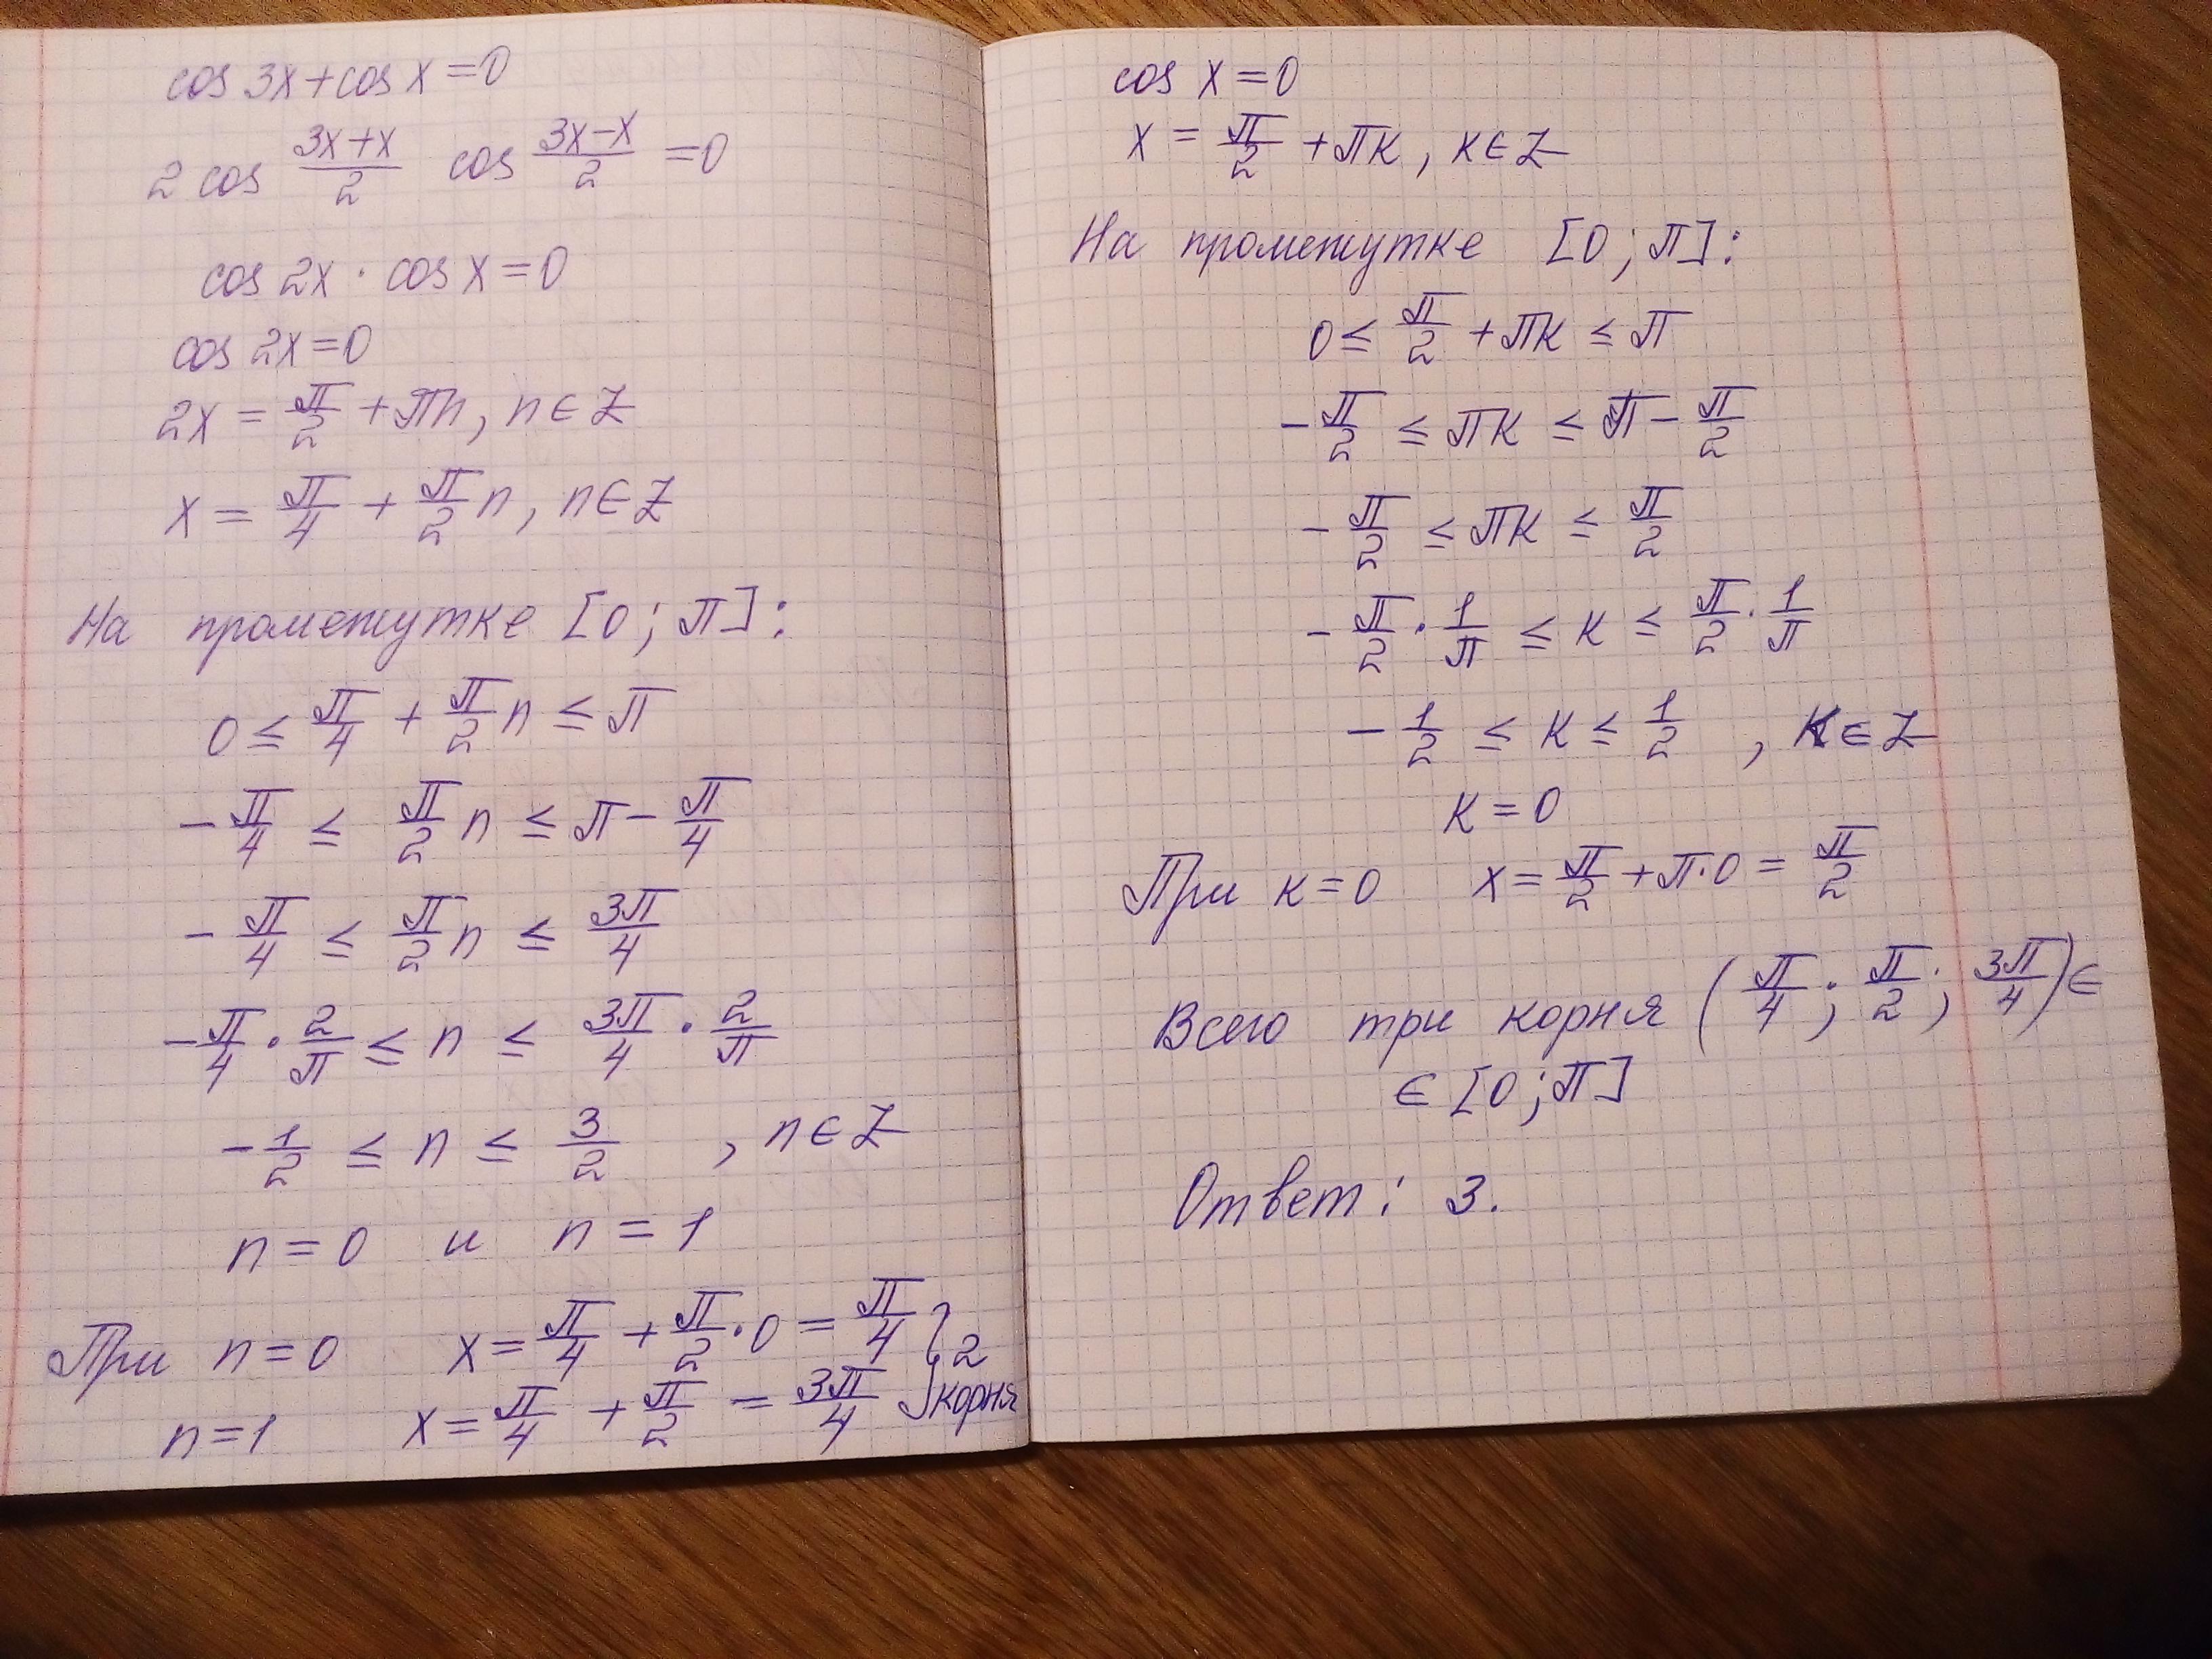 cos 3x + cos x = 0
2 cos (3x+x)/2 cos (3x−x)/2 = 0
cos 2x · cos x = 0
cos 2x = 0
2x = π/2 + πn, n ∈ Z
x = π/4 + π/2 n, n ∈ Z
На промежутке [0; π]:
0 ≤ π/4 + π/2 n ≤ π
−π/4 ≤ π/2 n ≤ π − π/4
−π/4 ≤ π/2 n ≤ 3π/4
−π/4 · 2/π ≤ n ≤ 3π/4 · 2/π
−1/2 ≤ n ≤ 3/2 , n ∈ Z
n = 0 и n = 1
При n = 0 x = π/4 + π/2 · 0 = π/4 } 2
n = 1 x = π/4 + π/2 = 3π/4 } корня
cos x = 0
x = π/2 + πк, к ∈ Z
На промежутке [0; π]:
0 ≤ π/2 + πк ≤ π
−π/2 ≤ πк ≤ π − π/2
−π/2 ≤ πк ≤ π/2
−π/2 · 1/π ≤ к ≤ π/2 · 1/π
−1/2 ≤ к ≤ 1/2 , к ∈ Z
к = 0
При к = 0 x = π/2 + π·0 = π/2
Всего три корня (π/4; π/2; 3π/4) ∈
∈ [0; π]
Ответ: 3.